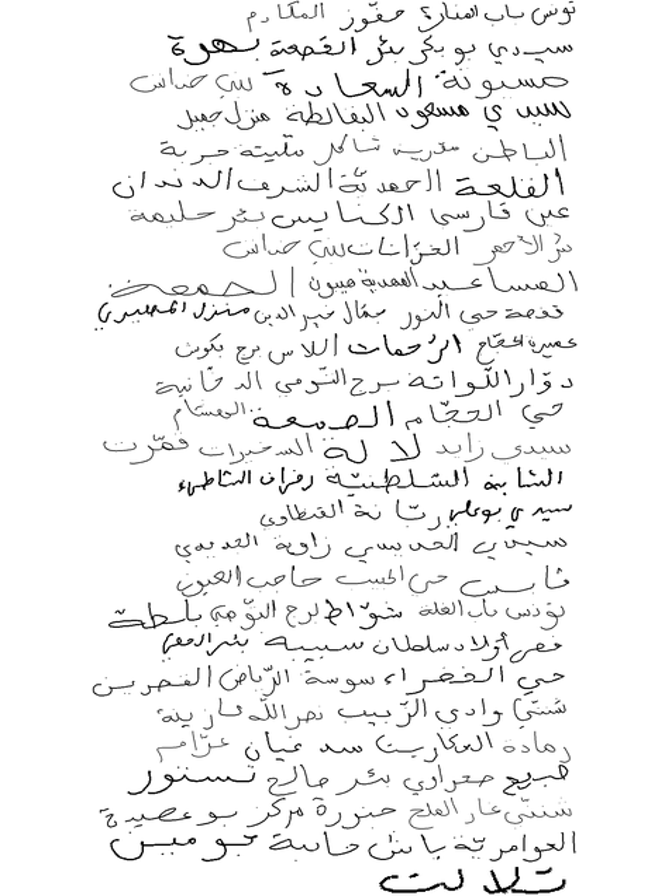 تونس باب المنارة حفّوز المكارم
سيدي بو بكر بئر القصعة بهرة
صبونة السعادة بني خداش
سيدي مسعود البقالطة منزل جميل
الباطن مدرسة شاكر مليتة جربة
القلعة الحمديّة الشرف الدندان
عين فارسي الكنايس بئر حليمة
بئر الأحمر الخزانات بني خداش
المساعيد المهدية ميبون الجمعة
قفصة حي النور جمّال خير الدين منزل
عميرة الحجّاج الرحمات اللاس برج
دوّار اللواتة برج التومي الدخانية
حي الحجّام الصمعة الهشام
سيدي زايد لالة السخيرات قمّرت
الشابة السّلطنيّة
سيدي بوعلي رتانة القطاوي
سيدي زاوية
قابس حي الحبيب حاجب العيون
تونس باب العلة شوّاط برج التومي بلطة
قصر أولاد سلطان سبيبة بئر الحفي
حي الخضراء سوسة الرّياض القصرين
شنني وادي الزّبيب نصر الله
رمادة العكاريت سد
صحراوي بئر صالح تستور
شنني غار الملح حنورة مركز بوعصيدة
العوامريّة باش حانبة جومين
تلالت